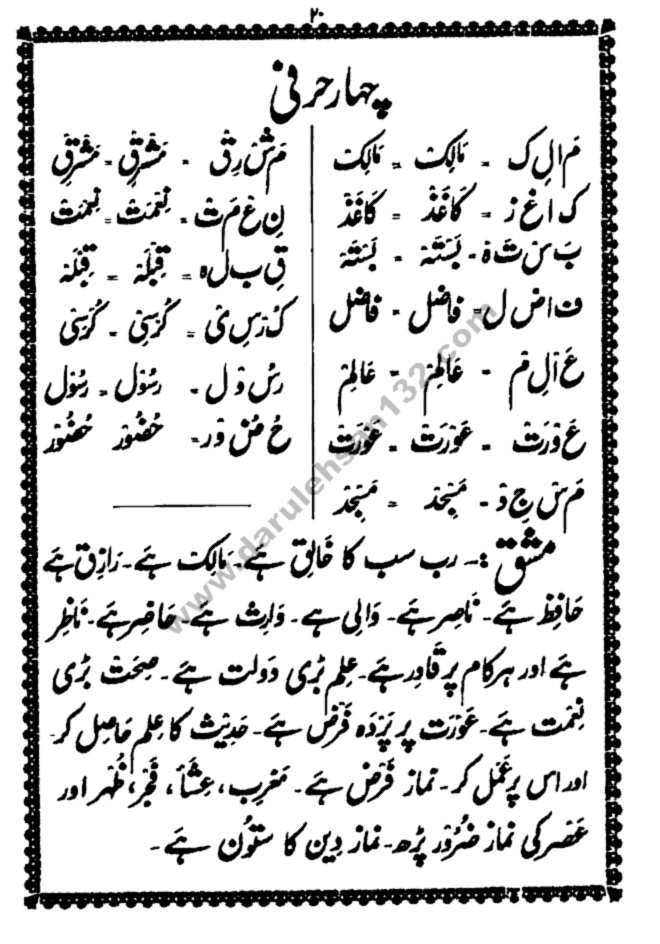 ۲۰
چہار حرفی
مَ ا لِ ک = مَالِکْ = مَالِکْ
کَ ا غَ ذ = کَاغَذْ = کَاغَذْ
بَ سْ تَ ہ - بَسْتَہْ = بَسْتَہْ
ف ا ضِ ل = فَاضِلْ - فَاضِلْ
عَ ا لِ مْ - عَالِمْ - عَالِمْ
عَ وْ رَ تْ - عَوْرَتْ - عَوْرَتْ
مَ سْ جِ دْ - مَسْجِدْ = مَسْجِدْ
مَ شْ رِ قْ - مَشْرِقْ = مَشْرِقْ
نِ عْ مَ تْ - نِعْمَتْ = نِعْمَتْ
قِ بْ لَ ہ = قِبْلَہْ = قِبْلَہْ
کُ رْ سِ یْ = کُرْسِیْ - کُرْسِیْ
رَ سُ وْ ل - رَسُوْل - رَسُوْل
حُ ضُ وْ ر = حُضُوْر حُضُوْر
مشق :- رب سب کا خَالِق ہے۔ مَالِک ہے۔ رَازِق ہے
حَافِظ ہے۔ نَاصِر ہے۔ وَالِی ہے۔ وَارِث ہے۔ حَاضِر ہے۔ نَاظِر
ہے اور ہر کام پر قَادِر ہے۔ عِلْم بڑی دَولت ہے۔ صِحَت بڑی
نِعْمَت ہے۔ عَوْرَت پر پَرْدَہ فَرْض ہے۔ حَدِیْث کا عِلْم حَاصِل کر۔
اور اس پر عَمَل کر۔ نماز فَرْض ہے۔ مَغرِب، عِشَاْ، فَجْر، ظُہْر اور
عَصْر کی نماز ضَرُوْر پڑھ۔ نماز دِین کا سَتُوْن ہے۔
www.darulehsan132.com